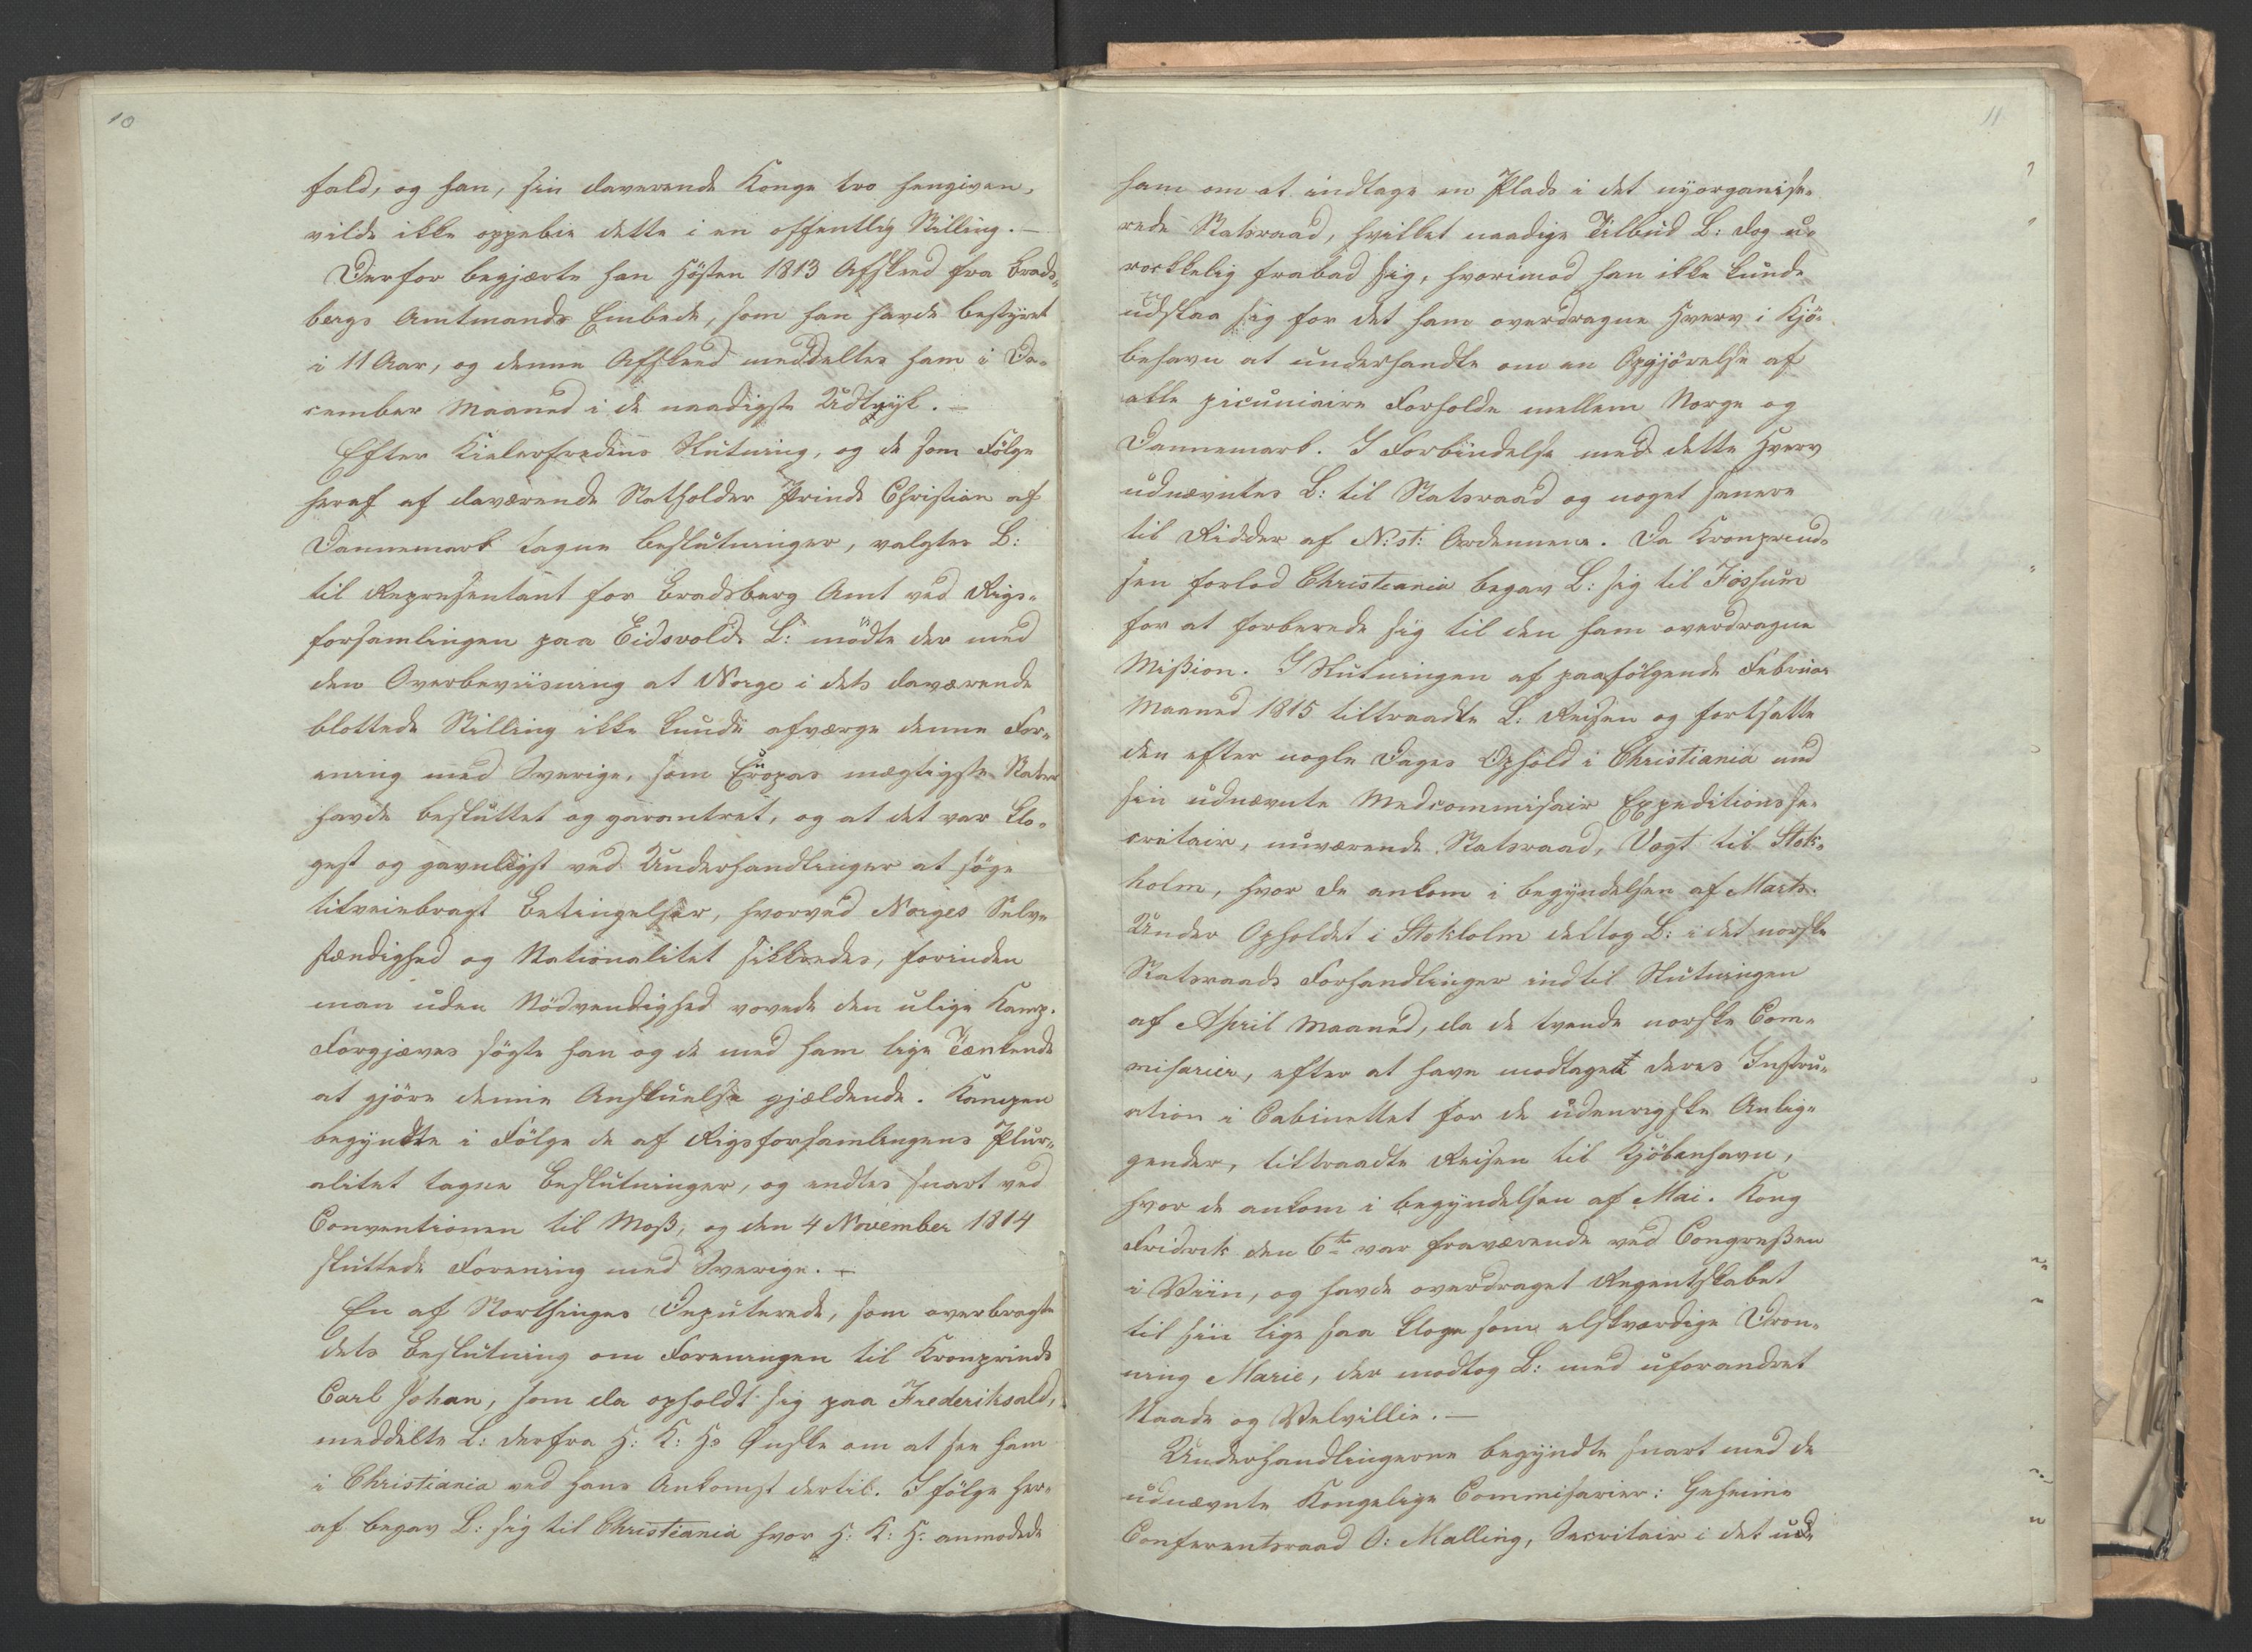 10
fald, og han, sin daverende Konge tro hengiven,
vilde ikke oppebie dette i en offentlig Stilling. —
Derfor begjærte han Hösten 1813 Afskeed fra Brads-
bergs Amtmands Embede, som han havde bestyret
i 11 Aar, og denne Afskeed meddeltes ham i De-
cember Maaned i de naadigste Udtryk. —
Efter Kielerfredens Slutning, og de som Fölge
heraf af daværende Statholder Prinds Christian af
Dannemark tagne Beslutninger, valgtes L:
til Repræsentant for Bradsberg Amt ved Rigs-
forsamlingen paa Eidsvold. L: mödte der med
den Overbeviisning at Norge i dets daværende
blottede Stilling ikke kunde afværge denne For-
ening med Sverige, som Europas mægtigste Stater
havde besluttet og garantret, og at det var klo-
gest og gavnligst ved Underhandlinger at söge
tilveiebragt Betingelser, hvorved Norges Selv-
stændighed og Nationalitet sikkredes, forinden
man uden Nödvendighed vovede den ulige Kamp.
Forgjæves sögte han og de med ham lige Tænkende
at gjöre denne Anskuelse gjældende. Kampen
begyndte i Fölge de af Rigsforsamlingens Plur-
alitet tagne Beslutninger, og endtes snart ved
Conventionen til Moß, og den 4 November 1814
sluttede Forening med Sverige. —
En af Storthinges Deputerede, som overbragte
dets Beslutning om Foreningen til Kronprinds
Carl Johan, som da opholdt sig paa Frederiksald,
meddelte L: derfra H: K: Hs Önske om at see ham
i Christiania ved Hans Ankomst dertil. I fölge her-
af begav L: sig til Christiania hvor H: K: H: anmodede
11
ham om at indtage en Plads i det nyorganise-
rede Statsraad, hvilket naadige Tilbud L: dog u-
rokkelig frabad sig, hvorimod han ikke kunde
udslaa sig for det ham overdragne Hverv i Kjö-
behavn at underhandle om en Opgjörelse af
alle picuniaire Forholde mellem Norge og
Dannemark. I Forbindelse med dette Hverv
udnævntes L: til Statsraad og noget senere
til Ridder af N: st: Ordennen. Da Kronprind-
sen forlod Christiania begav L: sig til Fossum
for at forberede sig til den ham overdragne
Mißion. I Slutningen af paafölgende Februar
Maaned 1815 tiltraadte L: Reisen og fortsatte
den efter nogle Dages Ophold i Christiania med
sin udnævnte Medcommisair Expeditionsse-
cretair, nuværende Statsraad, Vogt til Stok-
holm, hvor de ankom i begyndelsen af Marts.
Under Opholdet i Stokholm deltog L: i det norske
Statsraads Forhandlinger indtil Slutningen
af April Maaned, da de tvende norske Com-
misarier, efter at have modtaget deres Instru-
ction i Cabinettet for de udenrigske Anlig-
gender, tiltraadte Reisen til Kjöbenhavn,
hvor de ankom i begyndelsen af Mai. Kong
Fridrik den 6te var fraværende ved Congreßen
i Wiin, og havde overdraget Regentskabet
til sin lige saa kloge som elskværdige Dron-
ning Marie, der modtog L: med uforandret
Naade og Velvillie. —
Underhandlingerne begyndte snart med de
udnævnte Kongelige Commisarier: Geheime
Conferentsraad O: Malling, Secritair i det ud-